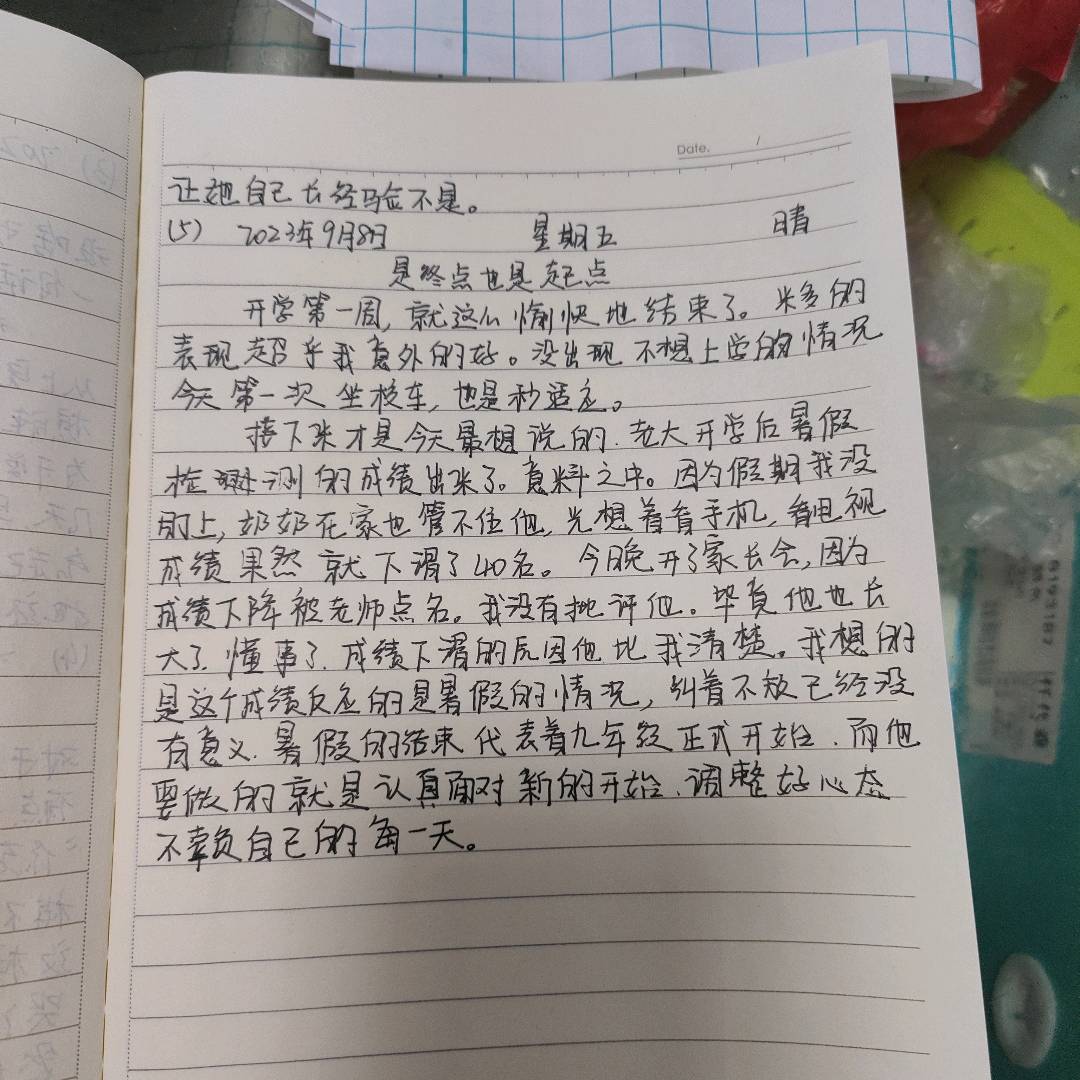 Date. /
让她自己长经验不是。
(5) 2023年9月8日 星期五 晴
是终点也是起点
开学第一周,就这么愉快地结束了。米多的
表现超乎我意外的好。没出现不想上学的情况
今天第一次坐校车,也是秒适应。
接下来才是今天最想说的.老大开学后暑假
检测的成绩出来了。意料之中。因为假期我没
的上,奶奶在家也管不住他,光想着看手机,看电视
成绩果然就下滑了40名。今晚开了家长会,因为
成绩下降被老师点名。我没有批评他。毕竟他也长
大了.懂事了.成绩下滑的原因他比我清楚。我想的
是这个成绩反应的是暑假的情况,纠着不放已经没
有意义.暑假的结束代表着九年级正式开始.而他
要做的就是认真面对新的开始.调整好心态
不辜负自己的每一天。